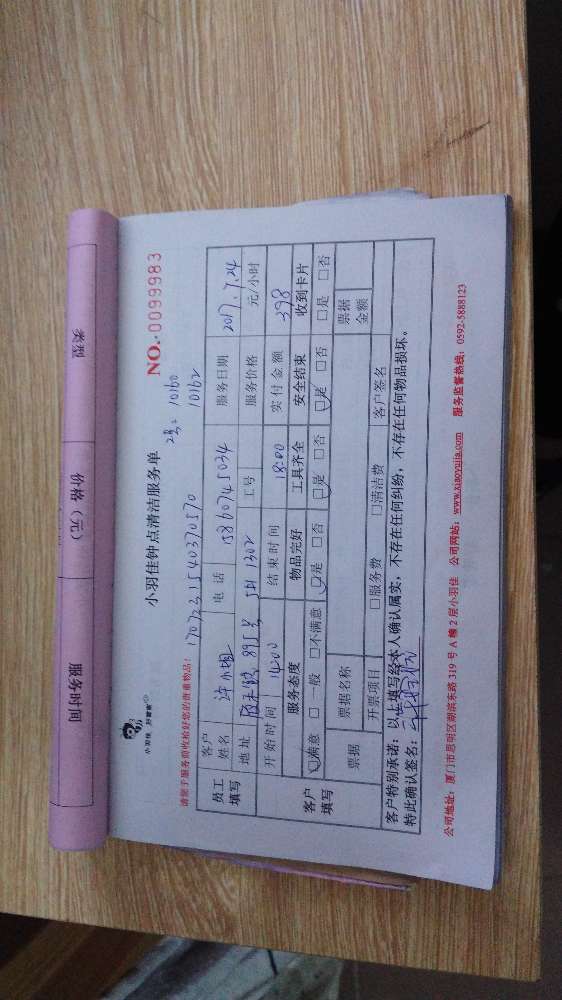 服务时间 价格（元） 类型
小羽佳 好管家
小羽佳钟点清洁服务单
NO.0099983
请您于服务前收检好您的贵重物品!
1707231540370570
10160
10162
员工填写 客户姓名 许小姐 电话 15860745034 服务日期 2017.7.24
地址 895号 1302 工号 服务价格 元/小时
开始时间 14:00 结束时间 18:00 实付金额 398
客户填写 服务态度 物品完好 工具齐全 安全结束 收到卡片
□满意 □一般 □不满意 □是 □否 □是 □否 □是 □否 □是 □否
票据 票据名称 票据金额
开票项目 □服务费 □清洁费 客户签名
客户特别承诺：以上填写经本人确认属实，不存在任何纠纷，不存在任何物品损坏。
特此确认签名：
公司地址：厦门市思明区湖滨东路 319 号 A 幢 2 层小羽佳 公司网站：www.xiaoyujia.com 服务监督热线：0592-5888123